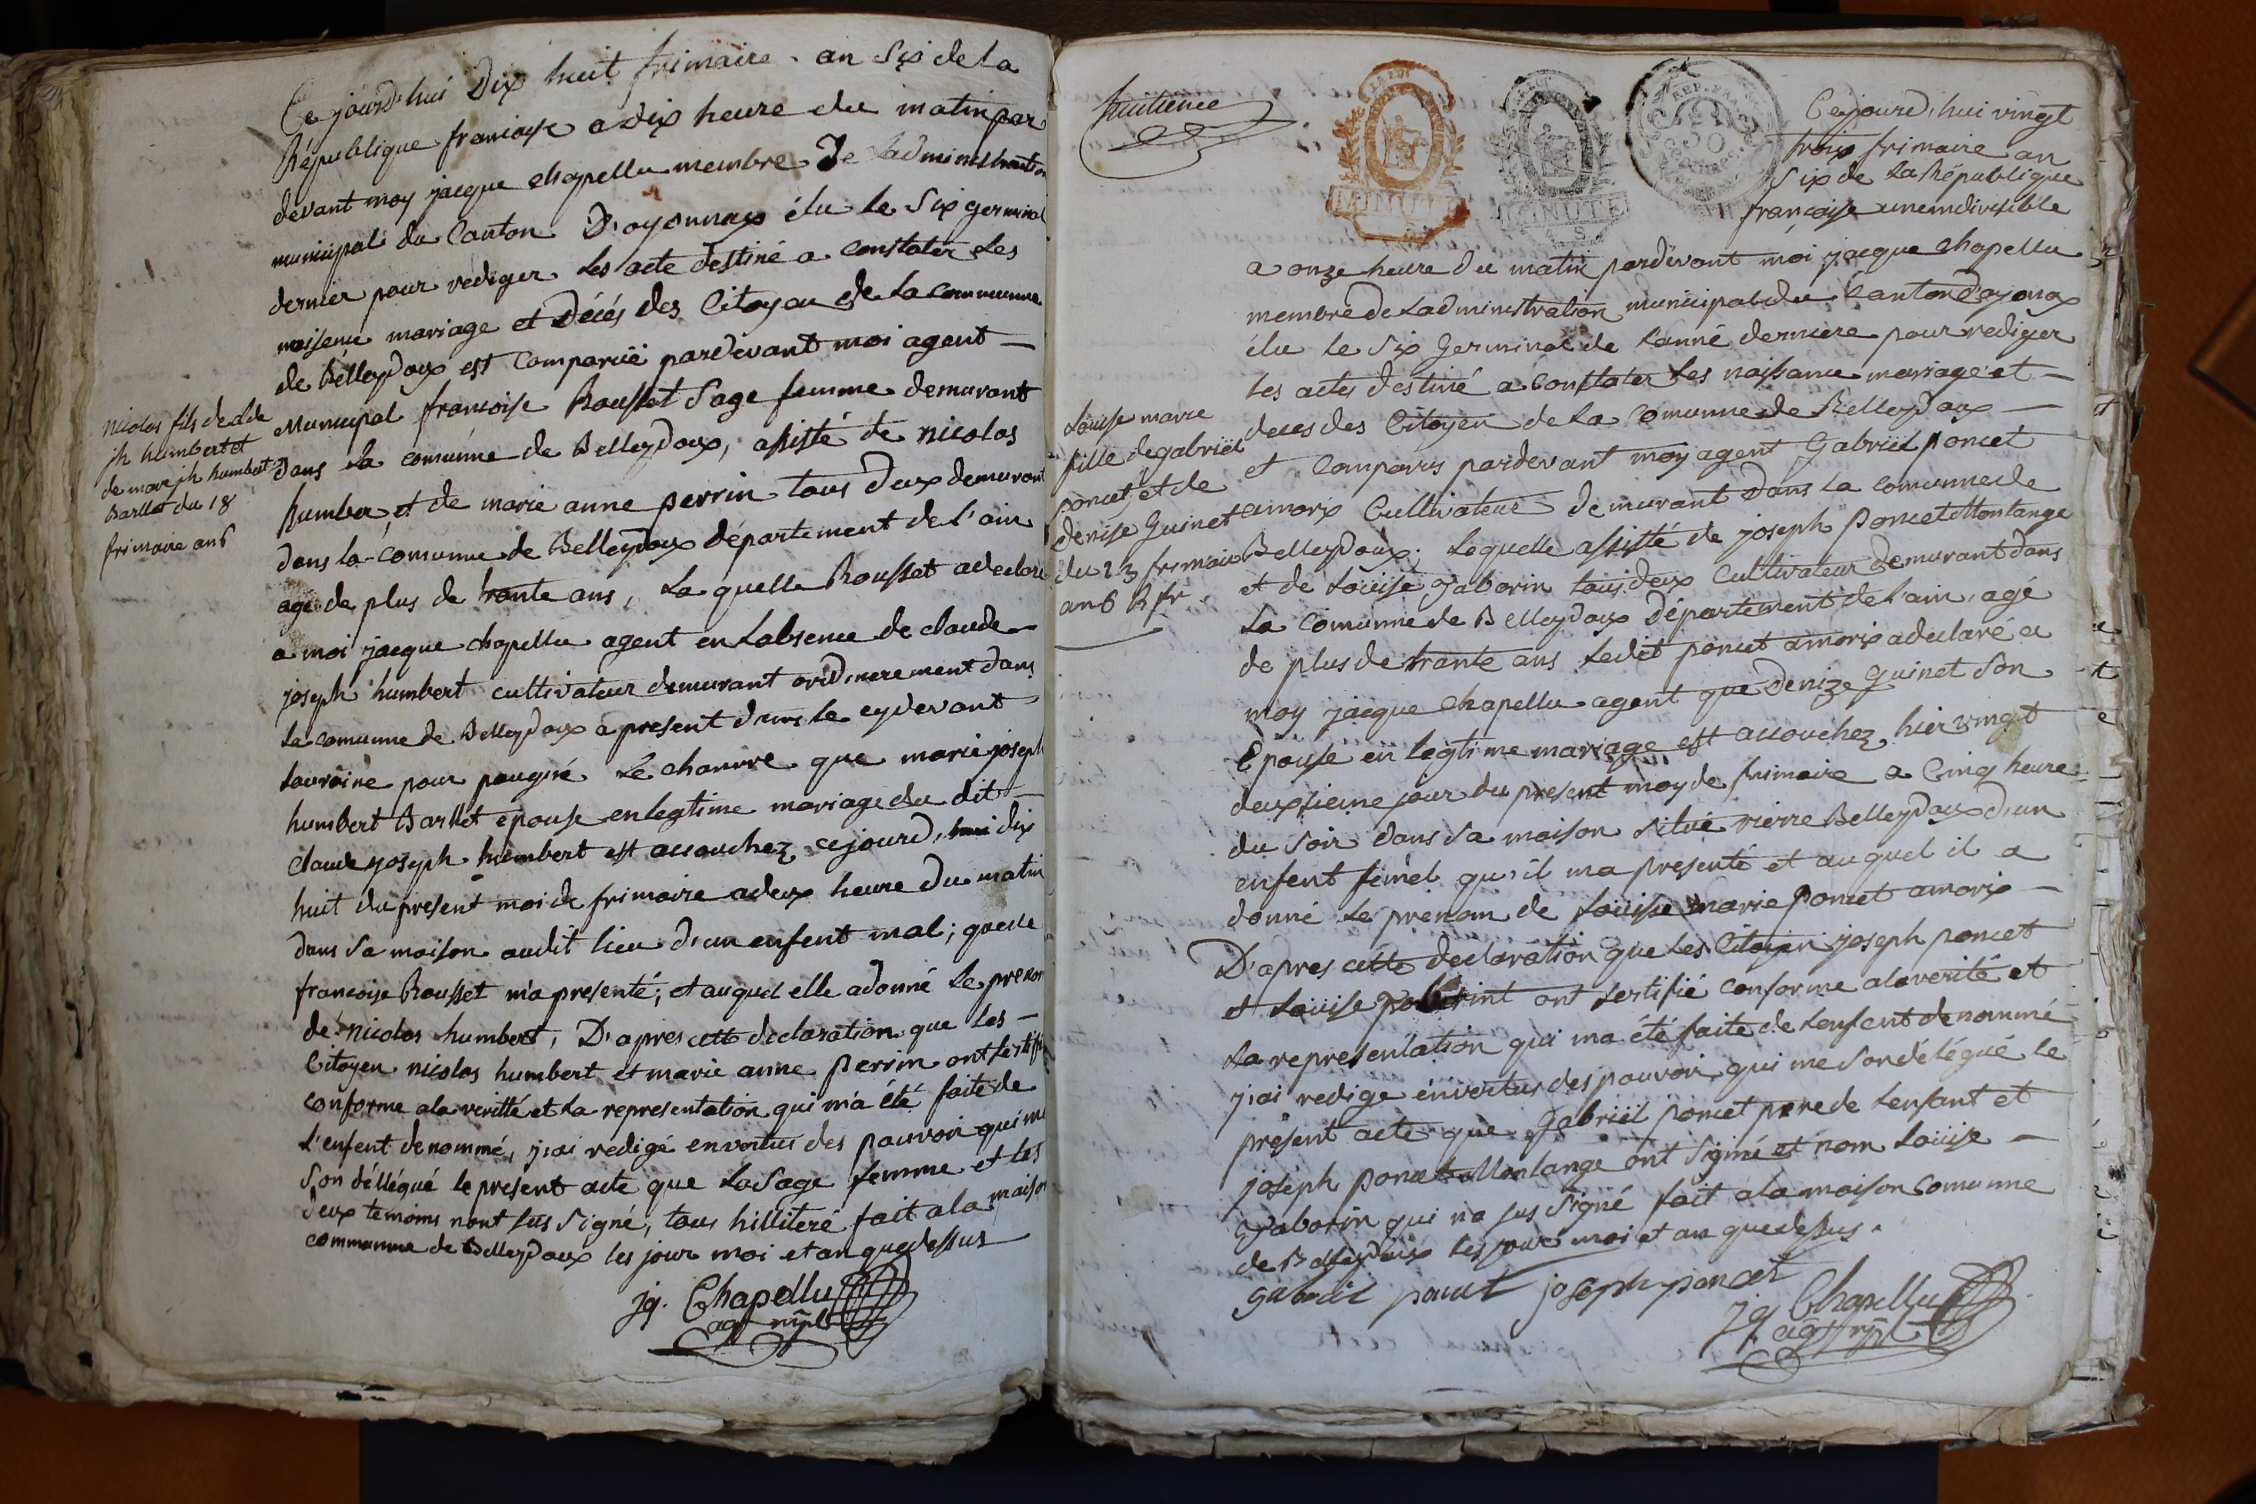 Ce jourd'hui Dix huit frimaire an Six de la
République francoise a dix heure du matin par
devant moy jacque chapellu membre De Ladministration
municipale du Canton D'oyonnax élu le Six germinal
dernier pour rediger Les acte destiné a constater Les
naissence mariage et décés des Citoyen de La commune
de Belleydoux est Comparuë pardevant moi agent
Municipal francoise Rousset Sage femme demurant
dans La comunne de Belleydoux, assisté de nicolas
humber, et de marie anne perrin tous deux demurant
dans la comunne de Belleydoux département de L'ain
agé de plus de trante ans, La quelle Rousset adeclaré
a moi jacque chapellu agent en Labsence de claude
joseph humbert cultivateur demurant ordinerement dans
La comunne de Belleydoux a present dans le cydevant
Lauraine pour peugné Le chanvre que marie joseph
humbert Barllet epouse en legtime mariage du dit
Claude joseph humbert est accouchez cejourd'hui dix
huit du present moi de frimaire a deux heure du matin
dans sa maison audit lieu d'un enfent mal; que le
francoise Rousset m'a presenté; et auquel elle a donné Le prenon
de nicolas humbert, D'apres cette declaration que Les
Citoyen nicolas humbert et marie anne perrin ont Sertifi
conforme a la veritté et La representation qui m'a été faite de
L'enfent denommé, j'ai redigé en vertus des pouvoir qui me
Son déllégué le present acte que La Sage femme et Les
deux temoins n'ont sus Signé, tous hilliteré fait a la maison
commune de Belleydoux les jour moi et an que dessus
jq. Chapellu
agt mpl
nicolas fils de clde
jh humbert et
de marie jh humbert
Barllet du 18
frimaire an 6
huitieme
MINUTE
MINUTE
REP. FRA.
50
Cejourd'hui vingt
trois frimaire an
Six de La République
françoise une indivisible
a onze heure du matin pardevant moi jacque chapellu
membre de Ladministration municipal du Canton d'oyonax
élu le Six Germinal de Lanné derniere pour rediger
Les actes destiné a constater Les naissance mariage et
deces des Citoyen de La Comunne de Belleydoux
et Comparus pardevant moy agent Gabriel poncet
amorix Cultivateur demurant dans La comunne de
Belleydoux. Lequelle assisté de joseph Poncet Montange
et de Louise Gaborin tous deux Cultivateur demurant dans
La Comunne de Belleydoux département de L'ain, agé
de plus de trante ans Ledit poncet amorix a declaré a
moy jacque chapellu agent que denize Guinet Son
Epouse en legtime mariage est accouchez hier vingt
deuxsieme jour du present moy de frimaire a Cinq heure
du Soir dans Sa maison Situé rierre Belleydoux d'un
enfent femel qu'il ma presenté et auquel il a
donné Le prenom de Louise marie Poncet amorix
D'apres cette declaration que Les Citoyen joseph poncet
et Louise Gaborint ont Sertifié conforme a la verité et
La representation qui ma été faite de Lenfent denommé
j'ai redige en vertus des pouvoir qui me Son délégué le
présent acte que Gabriel poncet pere de Lenfant et
joseph poncet Montange ont Signé et nom Louise
Gaborin qui na sus Signé fait a la maison Comunne
de Belleydoux Les jour moi et an que dessus.
gabriel poncet joseph poncet
jq Chapellu
agt mpl
Louise marie
fille de gabriel
poncet et de
denise Guinet
du 23 frimaire
an 6 R fr.